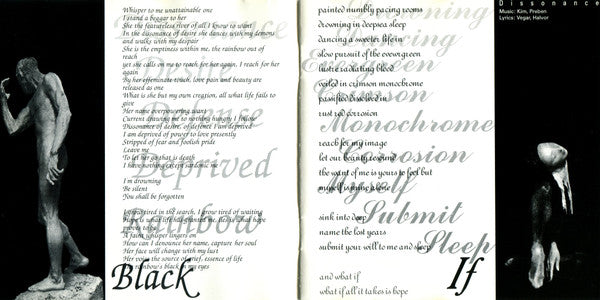 Whisper to me unattainable one
I stand a beggar to her
She the featureless river of all I know to want
In the dissonance of desire she dances with demons
and walks with my despair
She is the emptiness within me, the rainbow out of
reach
yet she calls on me to reach for her again, I reach for her
again
By her effeminate touch, love pain and beauty are
released as one
What is she but my own creation, all what life fails to
give
Her name everpowers
Current
Dissonance of desire, of defence I am deprived
I am deprived of power to love presently
Stripped of fear and foolish pride
Leave me
To let her go that is death
I have nothing except sardonic me
I'm drowning
Be silent
You shall be forgotten
in the search, I grow tired of waiting
whisper lingers on
How can I denounce her name, capture her soul
Her face will change with my lust
the source of grief, essence of life
rainbow's black in my eyes
Desire
Defiance
Deprived
Rainbow
Black
painted numbly pacing rooms
drowning in deepsea sleep
dancing a sweeter life in
slow pursuit of the evergreen
lustre radiating blood
veiled in crimson monochrome
passified dissolved in
rust red corrosion
reach for my image
let our beauty
the want of me is yours to feel but
myself is mine alone
sink into deep
name the lost years
submit your will to me and sleep
and what if
what if all it takes is hope
Drowning
Dancing
Evergreen
Crimson
Monochrome
Corrosion
Myself
Submit
Sleep
If
Dissonance
Music: Kim, Preben
Lyrics: Vegar, Halvor